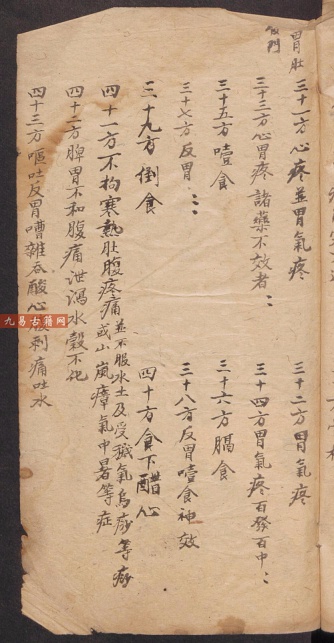 胃肚門
三十一方心疼並胃氣疼 三十二方胃氣疼
三十三方心胃疼諸藥不效者 三十四方胃氣疼百發百中
三十五方噎食 三十六方膈食
三十七方反胃 三十八方反胃噎食神效
三十九方倒食 四十方食下醋心
四十一方不拘寒熱肚腹疼痛並不服水土及受瘴氣烏痧等痧或山嵐瘴氣中暑等症
四十二方脾胃不和腹痛泄瀉水穀不化
四十三方嘔吐反胃嘈雜吞酸心刺痛吐水
九易古籍网